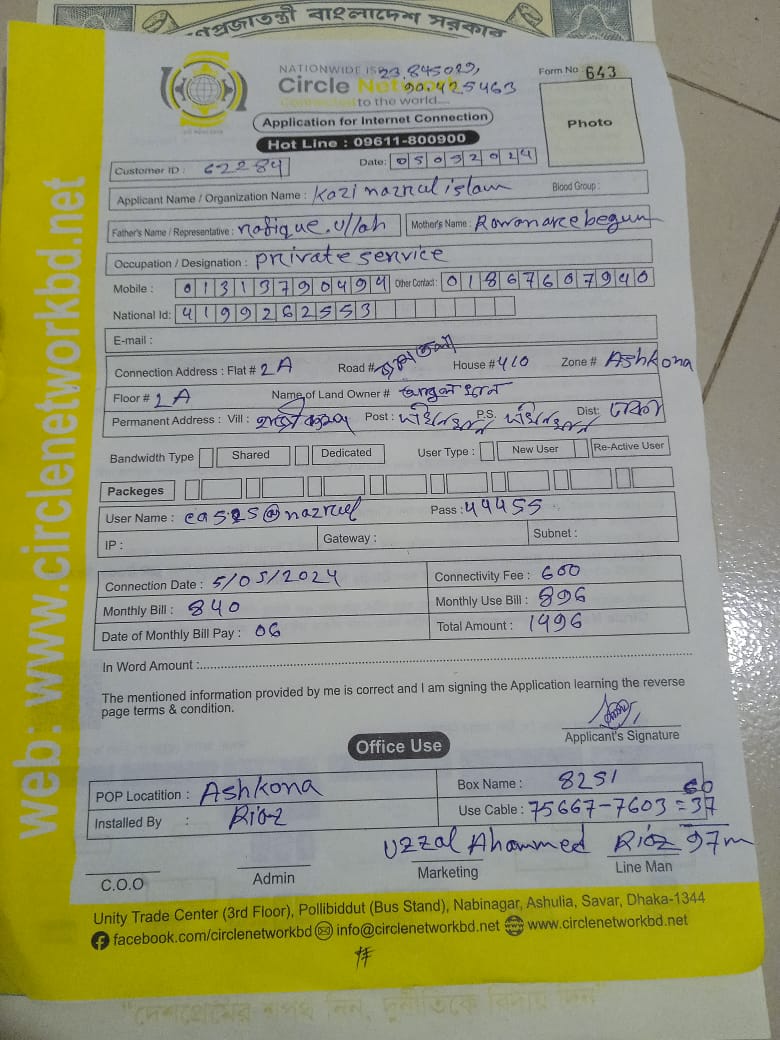 গণপ্রজাতন্ত্রী বাংলাদেশ সরকার
NATIONWIDE IS 23.845029,
Circle Network 90.425463
Connected to the world....
Form No 643
Application for Internet Connection
Hot Line : 09611-800900
Photo
Customer ID : 62284 Date: 05032024
Applicant Name / Organization Name : Kazi nazrul islam Blood Group :
Father's Name / Representative : rafique.ullah Mother's Name : Rowonarebegum
Occupation / Designation : private service
Mobile : 01313790494 Other Contact : 01867607940
National Id: 4199262553
E-mail :
Connection Address : Flat # 2A Road # House # 410 Zone # Ashkona
Floor # 2A Name of Land Owner #
Permanent Address : Vill : Post : P.S. Dist:
Bandwidth Type Shared Dedicated User Type : New User Re-Active User
Packeges
User Name : @nazrul Pass : 44455
IP : Gateway : Subnet :
Connection Date : 5/05/2024 Connectivity Fee : 600
Monthly Bill : 840 Monthly Use Bill : 896
Date of Monthly Bill Pay : 06 Total Amount : 1496
In Word Amount :
The mentioned information provided by me is correct and I am signing the Application learning the reverse
page terms & condition.
Applicant's Signature
Office Use
POP Locatition : Ashkona Box Name : 8251
Installed By : Riaz Use Cable : 75667-7603 = 37
60
Uzzal Ahammed Riaz 97m
C.O.O Admin Marketing Line Man
Unity Trade Center (3rd Floor), Pollibiddut (Bus Stand), Nabinagar, Ashulia, Savar, Dhaka-1344
facebook.com/circlenetworkbd info@circlenetworkbd.net www.circlenetworkbd.net
web: www.circlenetworkbd.net
"দেশপ্রেমের শপথ নিন, দুর্নীতিকে বিদায় দিন"